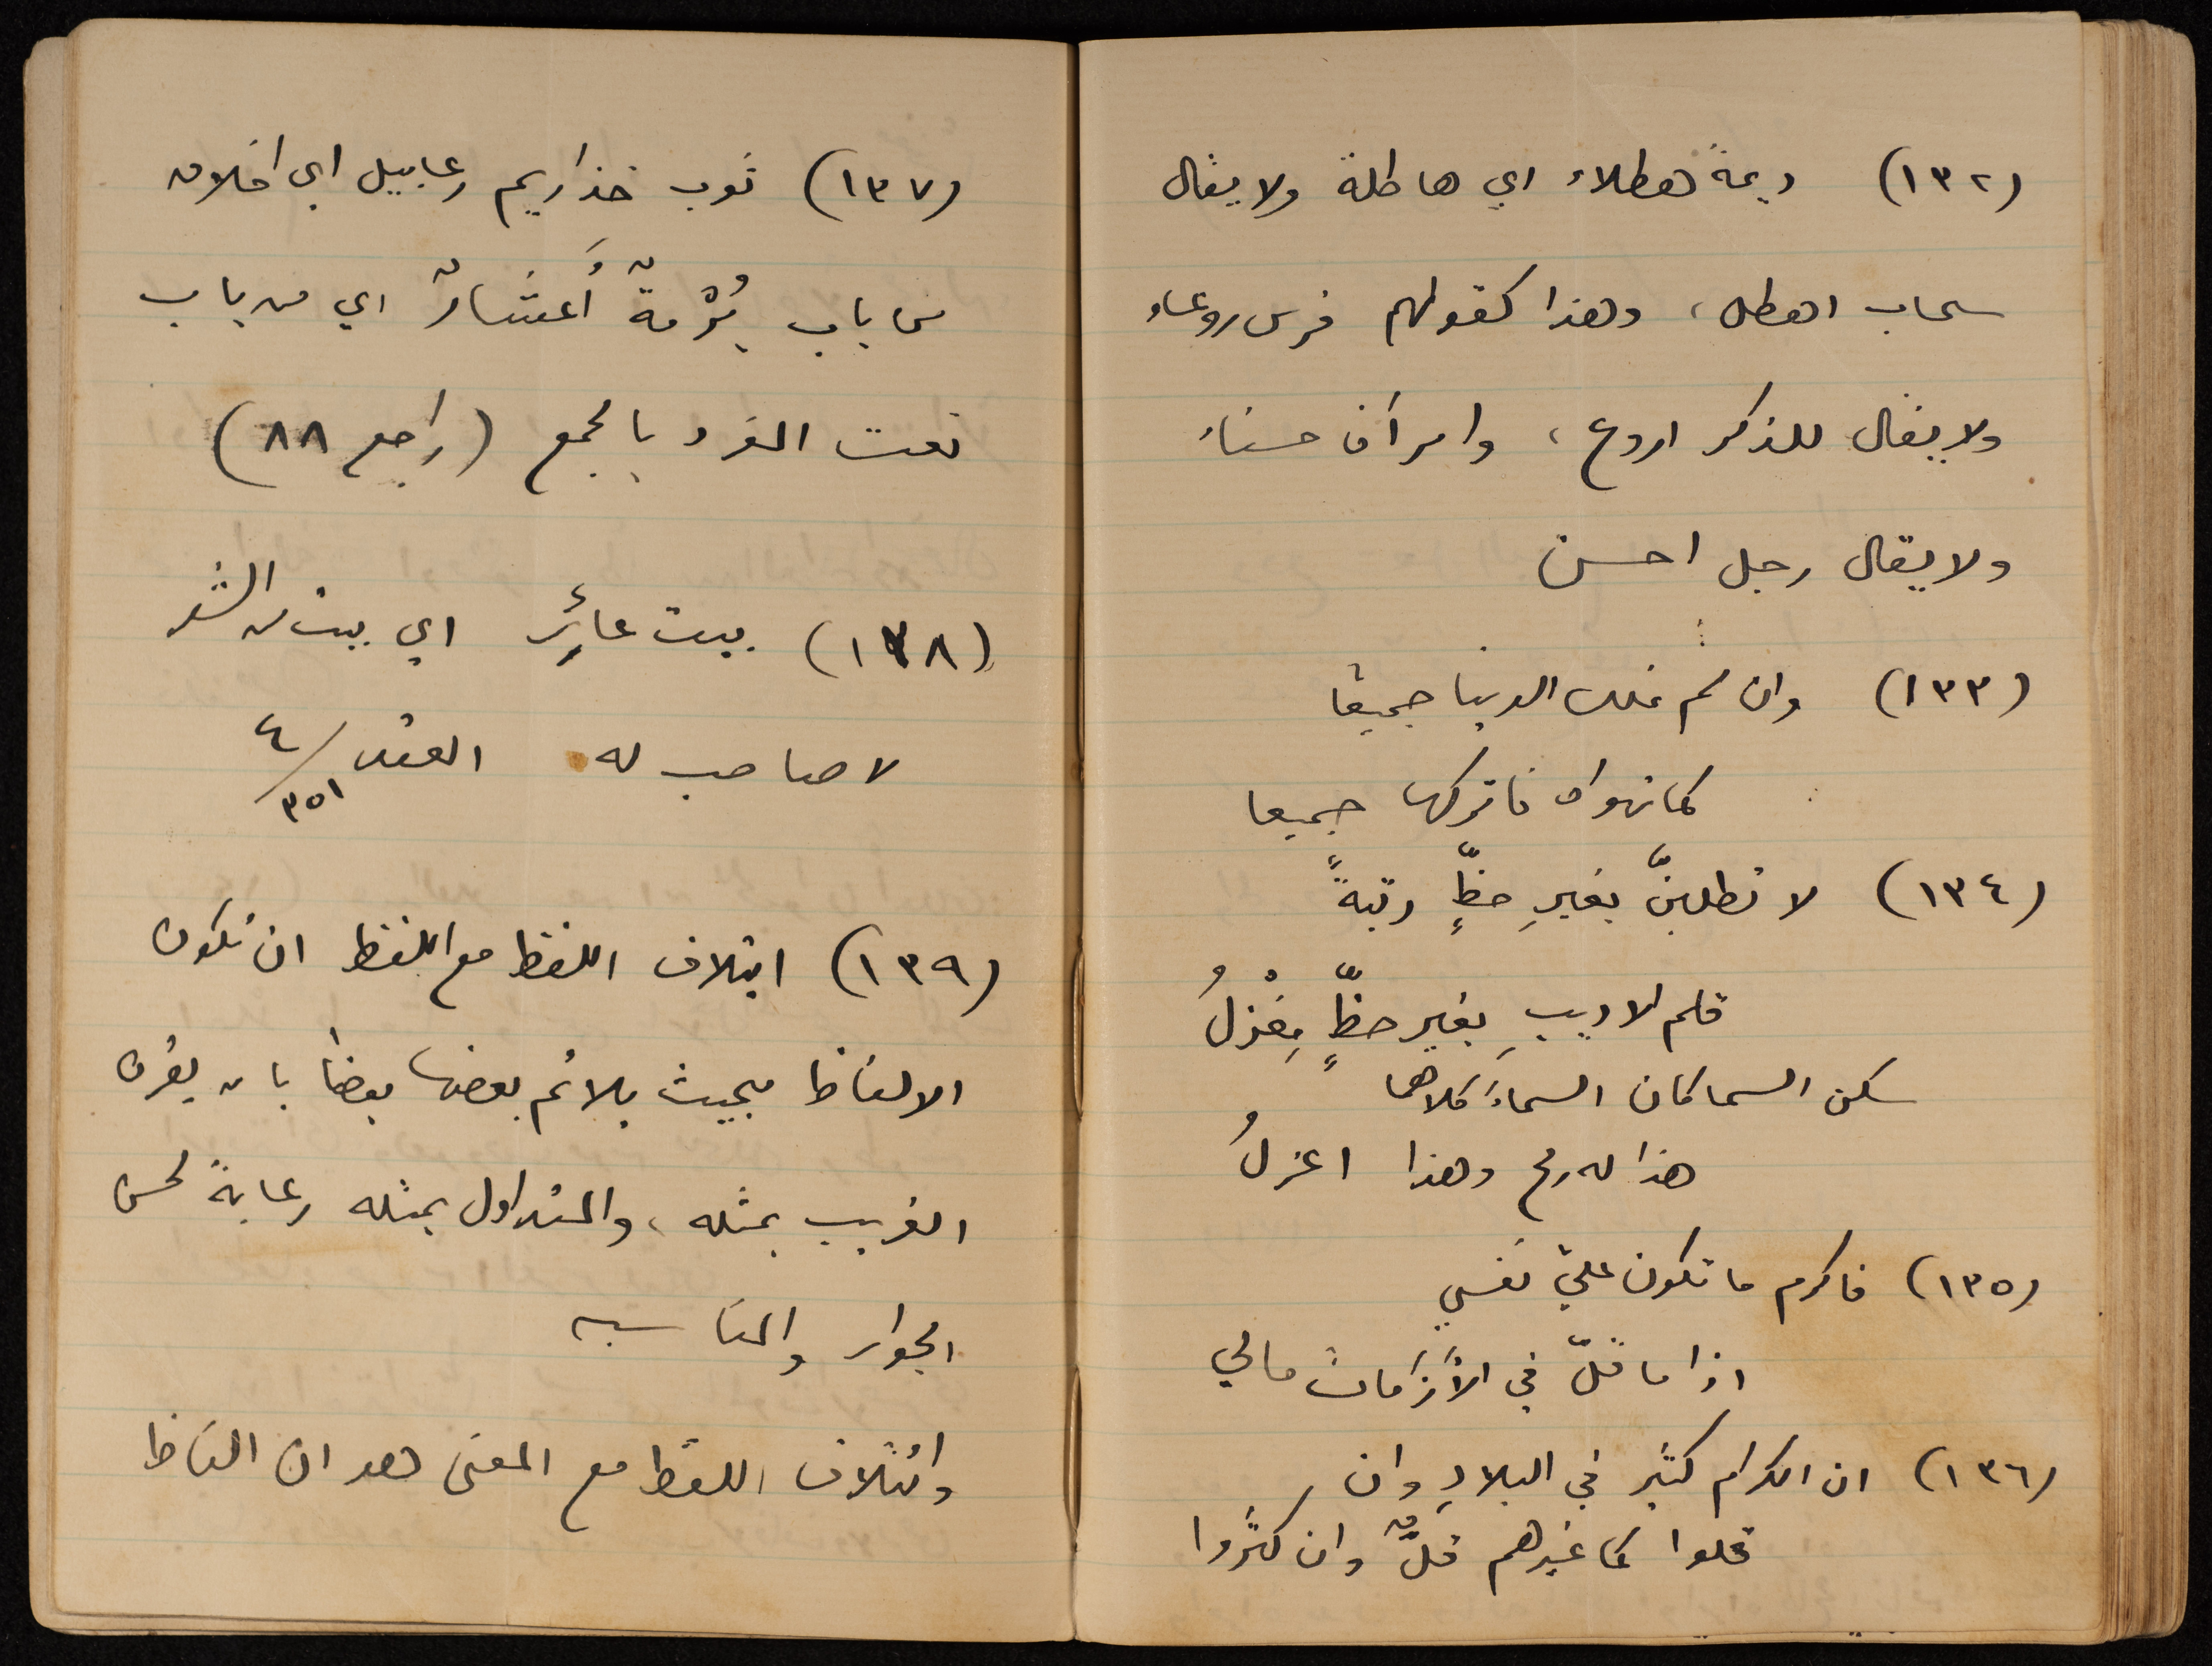 (١٣٢) ديمة هطلاء اي هاطلة ولا يقال
سحاب اهطل، وهذا كقولهم فرس روعاء
ولا يقال للذكر اروع، وامرأة حسناء
ولا يقال رجل احسن
(١٣٣) وان لم تملك الدنيا جميعًا
كما تهواه فاتركها جميعا
(١٣٤) لا تطلبنّ بغيرِ حظٍّ رتبةً
قلم الاديبِ بغير حظٍّ مِغْزلُ
سكن السماكان السماءَ كلاهما
هذا له رمح وهذا اعزلُ
(١٣٥) فاكرم ما تكون عليّ نفسي
اذا ما قلّ في الأزَمات مالي
(١٣٦) ان الكرام كثير في البلادِ وان
قلوا كما غيرهم قلٌّ وان كثُروا
(١٣٧) ثوب رعابيل اي اخلاق
من باب بُرْمةٌ أَعشارٌ اي من باب
نعت المفرد بالجمع (راجع ٨٨)
(١٣٨) بيت عائر اي بيت من الشعر
لا صاحب له العقد ٤/٣٥١
(١٣٩) ائتلاف اللفظ مع اللفظ ان تكون
الالفاظ بحيث يلائم بعضها بعضًا بان يقرن
الغريب بمثله، والمتداول بمثله رعايةً لحسن
الجوار والمناسبه
وائتلاف اللفظ مع المعنى هو ان الفاظ